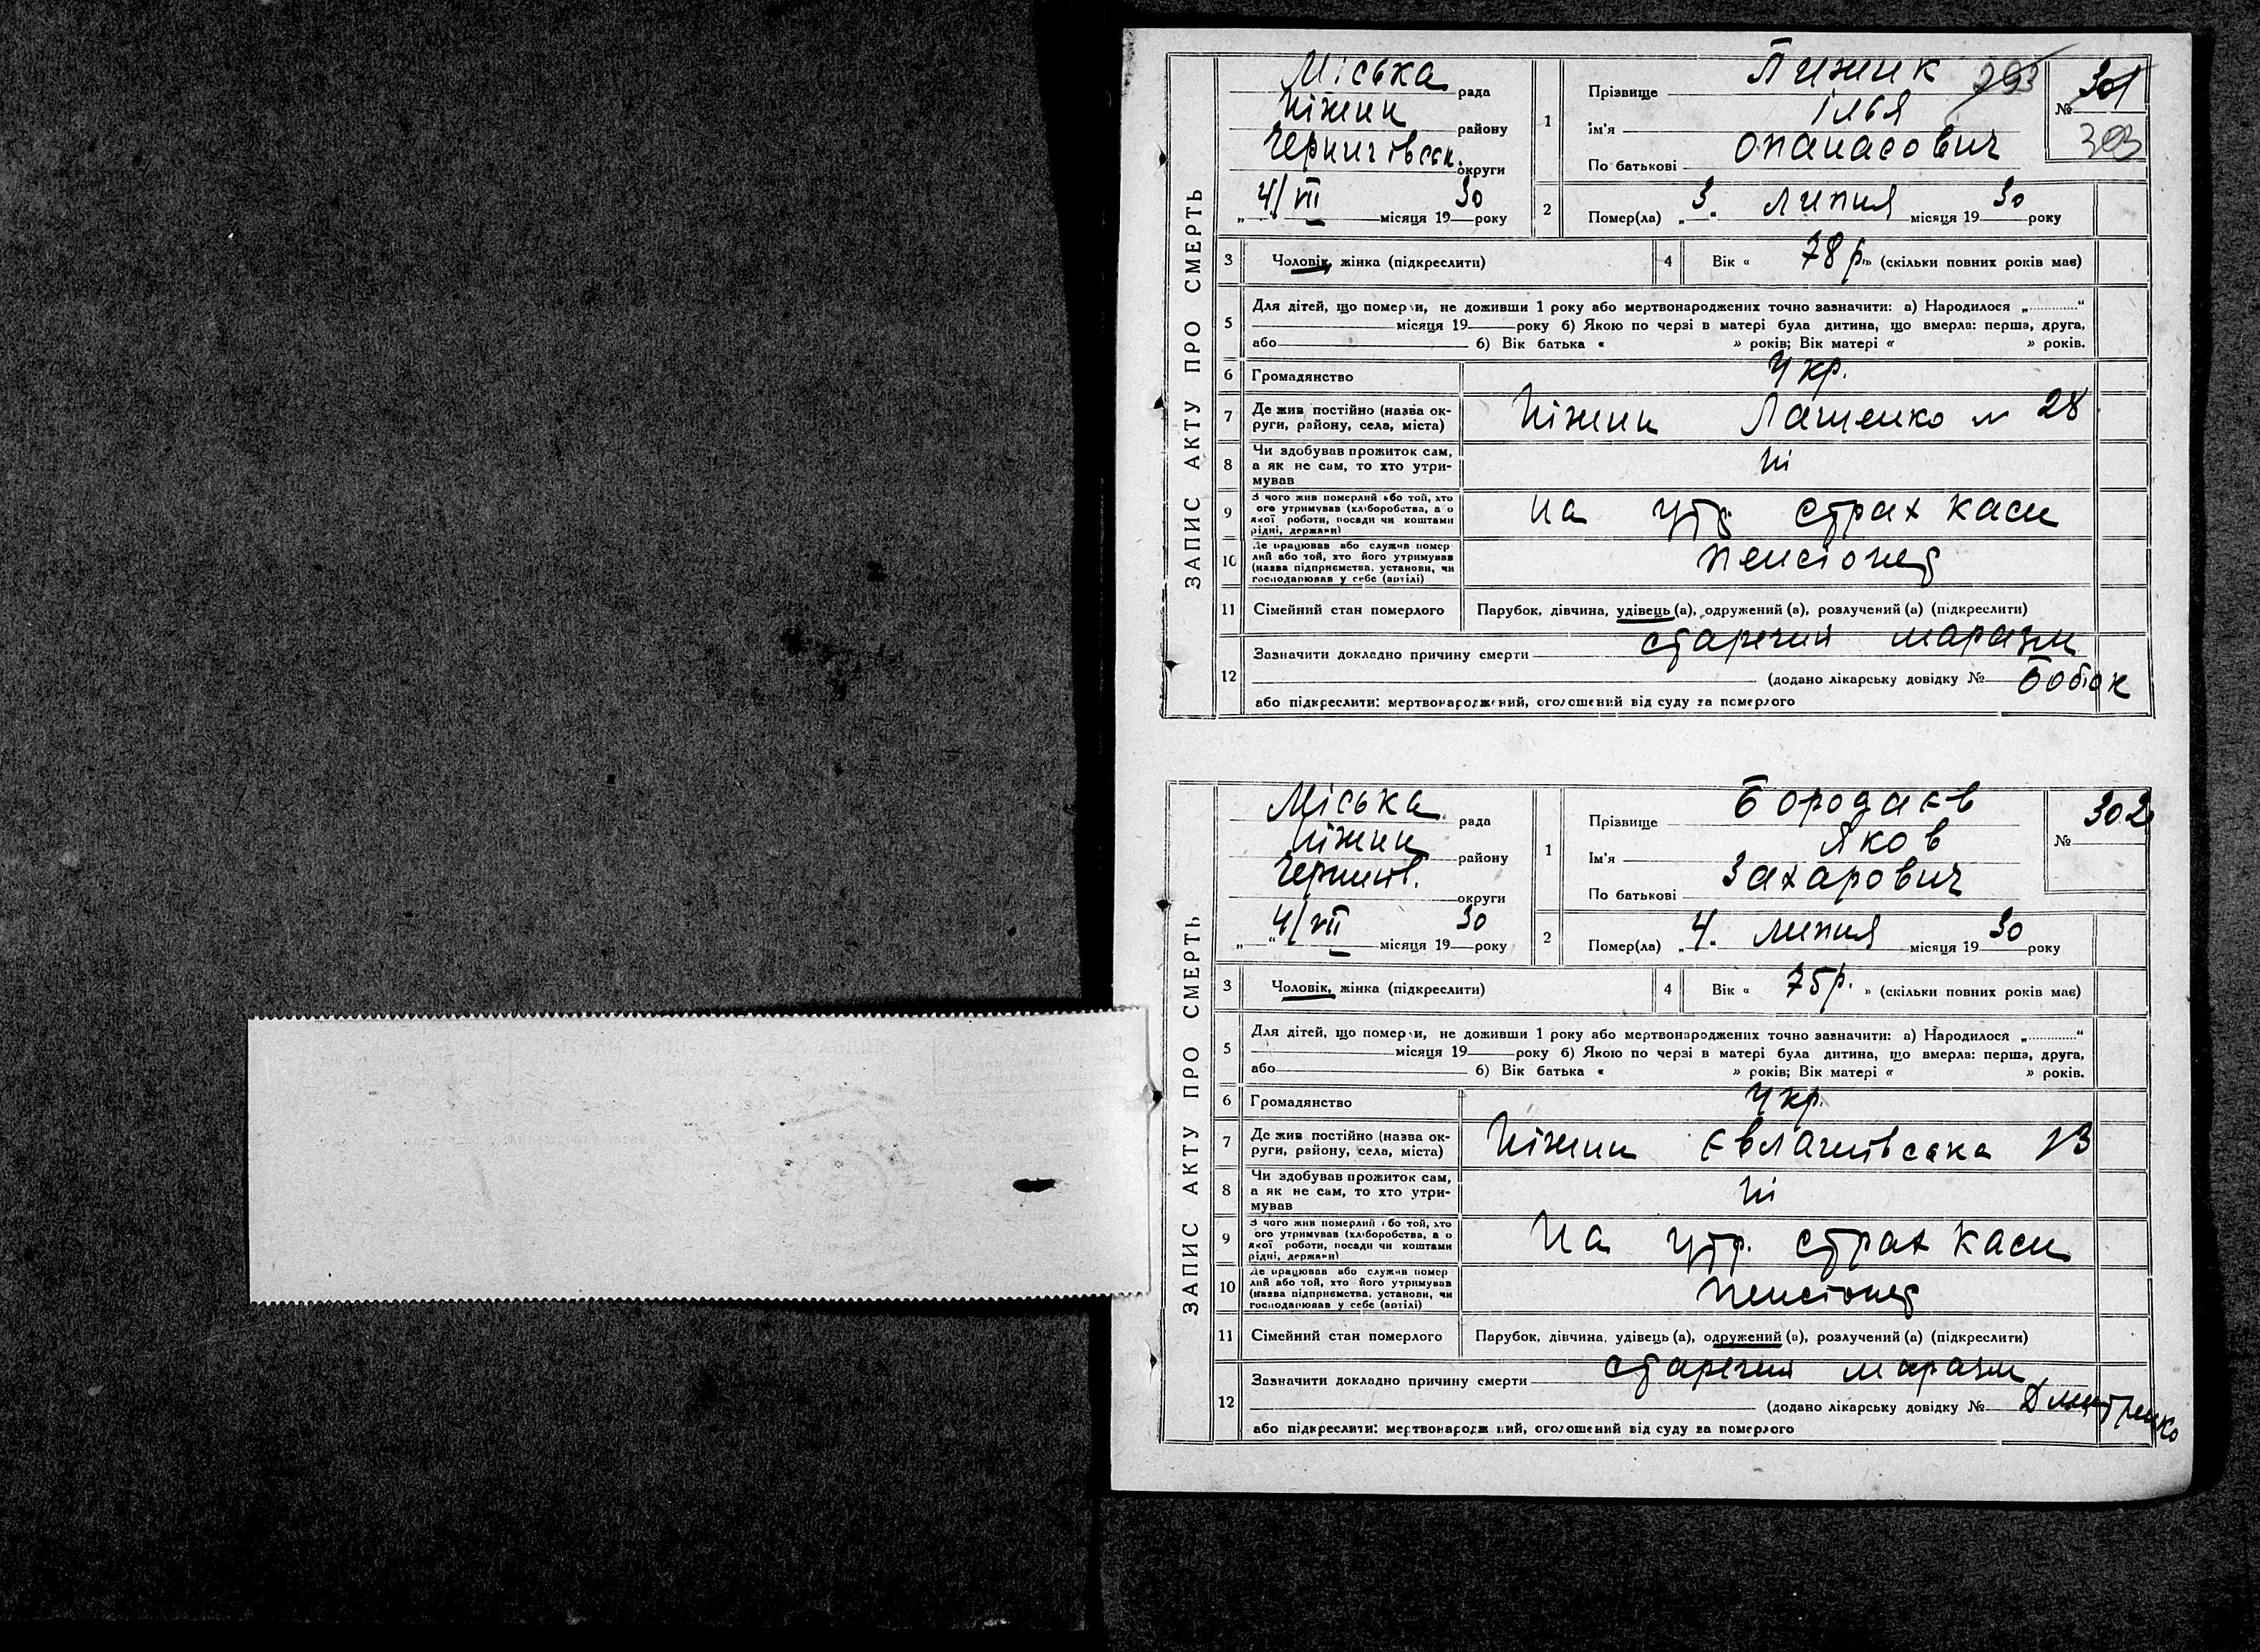 ЗАПИС АКТУ ПРО СМЕРТЬ
Міська рада
Ніжин району
Чернигівськ. округи
„ 4/VII місяця 1930 року
1
Прізвище Пижик 293
Ім'я Ілья
По батькові Опанасович
№ 301
303
2 Помер(ла) „3“ липня місяця 1930 року
3 Чоловік, жінка (підкреслити)
4 Вік « 78 р.» (скільки повних років має)
5 Для дітей, що померли, не доживши 1 року або мертвонароджених точно зазначити: а) Народилося „............“
місяця 19 року б) Якою по черзі в матері була дитина, що вмерла: перша, друга,
або б) Вік батька « » років; Вік матері « » років.
6 Громадянство Укр.
7 Де жив постійно (назва округи, району, села, міста) Ніжин Лащенко № 28
8 Чи здобував прожиток сам, а як не сам, то хто утримував Ні
9 З чого жив померлий або той, хто ого утримував (хліборобства, а о якої роботи, посади чи коштами рідні, держави) на утр. страх каси
10 Де працював або служив померлий або той, хто його утримував (назва підприємства, установи, чи господарював у себе (артілі) пенсіонер
11 Сімейний стан померлого Парубок, дівчина, удівець (а), одружений (а), розлучений (а) (підкреслити)
12 Зазначити докладно причину смерти старечий маразм
(додано лікарську довідку № Бобюк
або підкреслити: мертвонароджений, оголошений від суду за померлого
ЗАПИС АКТУ ПРО СМЕРТЬ
Міська рада
Ніжин району
Чернигів. округи
„ “ 4/VII місяця 1930 року
1
Прізвище Бородаєв
Ім'я Яков
По батькові Захарович
№ 302
2 Помер(ла) „4“ липня місяця 1930 року
3 Чоловік, жінка (підкреслити)
4 Вік « 75 р. » (скільки повних років має)
5 Для дітей, що померли, не доживши 1 року або мертвонароджених точно зазначити: а) Народилося „............“
місяця 19 року б) Якою по черзі в матері була дитина, що вмерла: перша, друга,
або б) Вік батька « » років; Вік матері « » років.
6 Громадянство Укр.
7 Де жив постійно (назва округи, району, села, міста) Ніжин Євлашівська 13
8 Чи здобував прожиток сам, а як не сам, то хто утримував Ні
9 З чого жив померлий або той, хто ого утримував (хліборобства, а о якої роботи, посади чи коштами рідні, держави) На утр. страх каси
10 Де працював або служив померлий або той, хто його утримував (назва підприємства, установи, чи господарював у себе (артілі) Пенсіонер
11 Сімейний стан померлого Парубок, дівчина, удівець (а), одружений (а), розлучений (а) (підкреслити)
12 Зазначити докладно причину смерти старечий маразм
(додано лікарську довідку № Дмитренко
або підкреслити: мертвонароджений, оголошений від суду за померлого